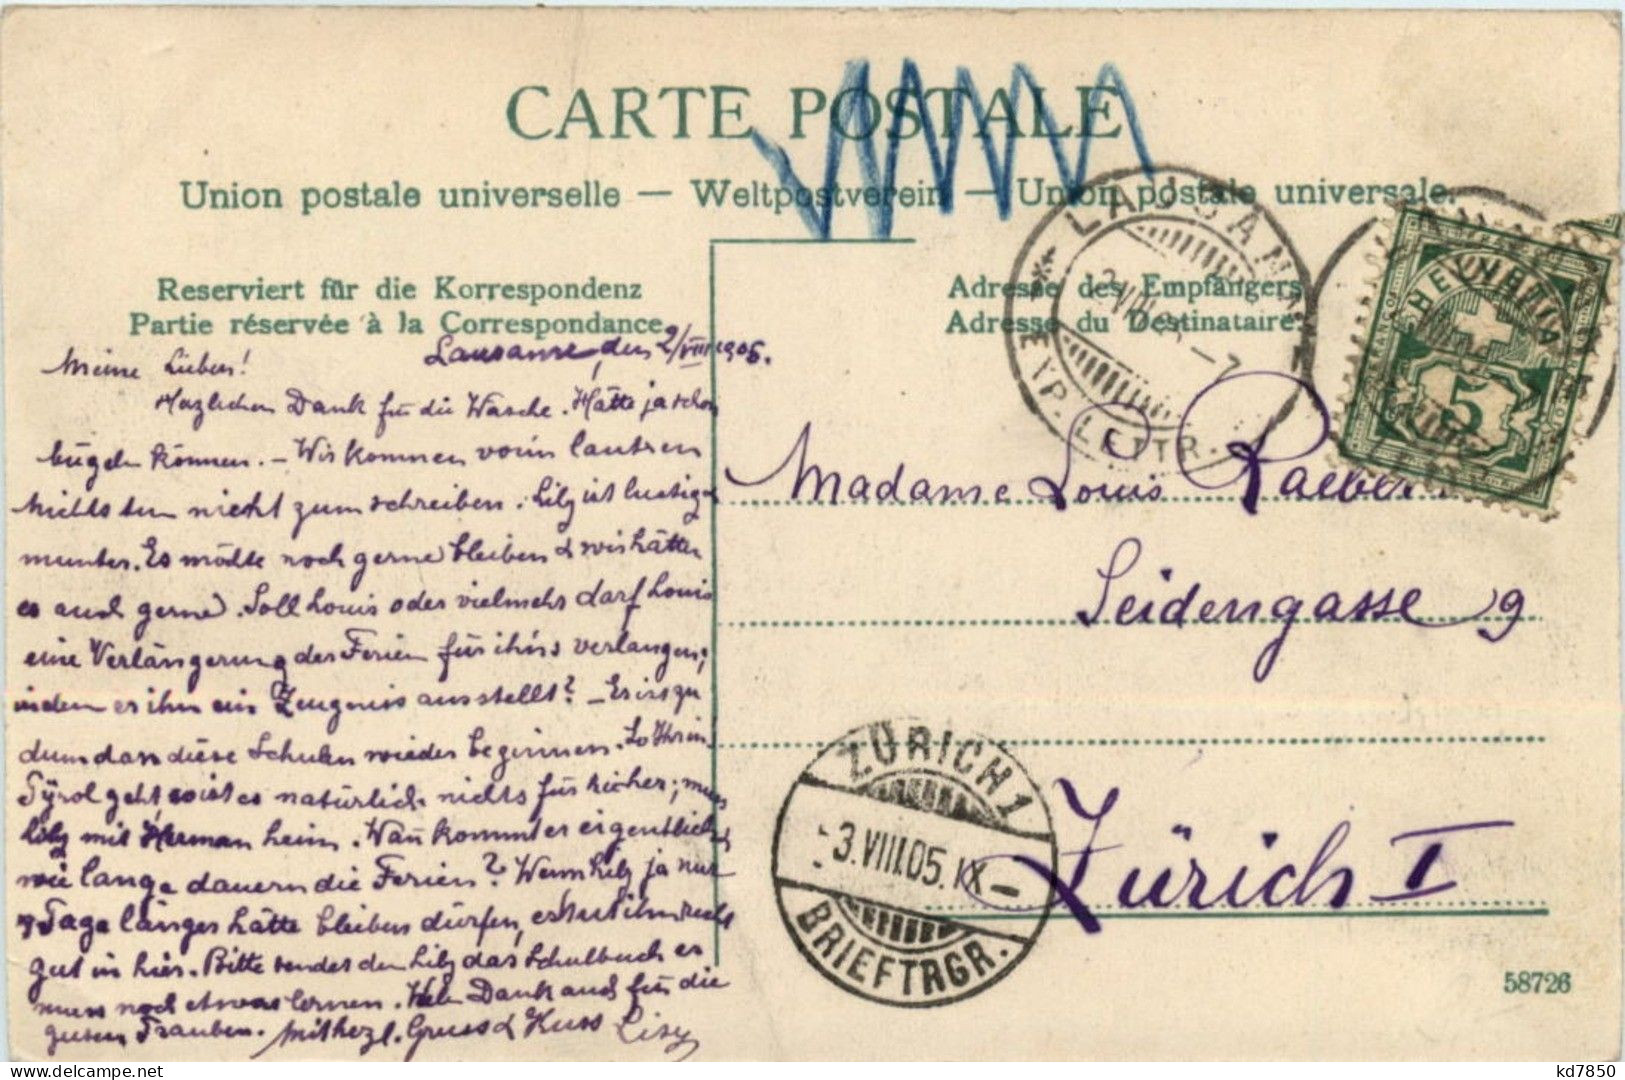 CARTE POSTALE
Union postale universelle — Weltpostverein — Union postale universale.
Reserviert für die Korrespondenz
Partie réservée à la Correspondance
Adresse des Empfängers
Adresse du Destinataire.
LAUSANNE
EXP. LETTR.
HELVETIA
5
Lausanne, den 2/VIII 1905.
Meine Lieben!
Herzlichen Dank für die Wäsche. Hätte ja schon
bügeln können. – Wir kommen vorm lauter
nichts tun nicht zum schreiben. Lily ist lustig
munter. Es möchte noch gerne bleiben & wir hätten
es auch gerne. Soll Louis oder vielmehr darf Louis
eine Verlängerung der Ferien für ihns verlangen,
indem er ihm ein Zeugnis ausstellt? – Es ist zu
dumm dass diese Schulen wieder beginnen.
Tyrol geht so ist es natürlich nichts für hieher; muss
Lily mit Herman heim. Wañ kommt er eigentlich &
wie lange dauern die Ferien? Wenn Lily ja nur
Tage länger hätte bleiben dürfen, es thut ihm recht
gut in hier. Bitte sendet den Lily das Schulbuch es
muss noch etwas lernen. Dank auch für die
guten Trauben. Mit herzl. Gruss & Kuss Lisy
Madame Louis Raeber
Seidengasse 9
Zürich I
ZÜRICH 1
-3.VIII.05.IX–
BRIEFTRGR.
58726
kd7850